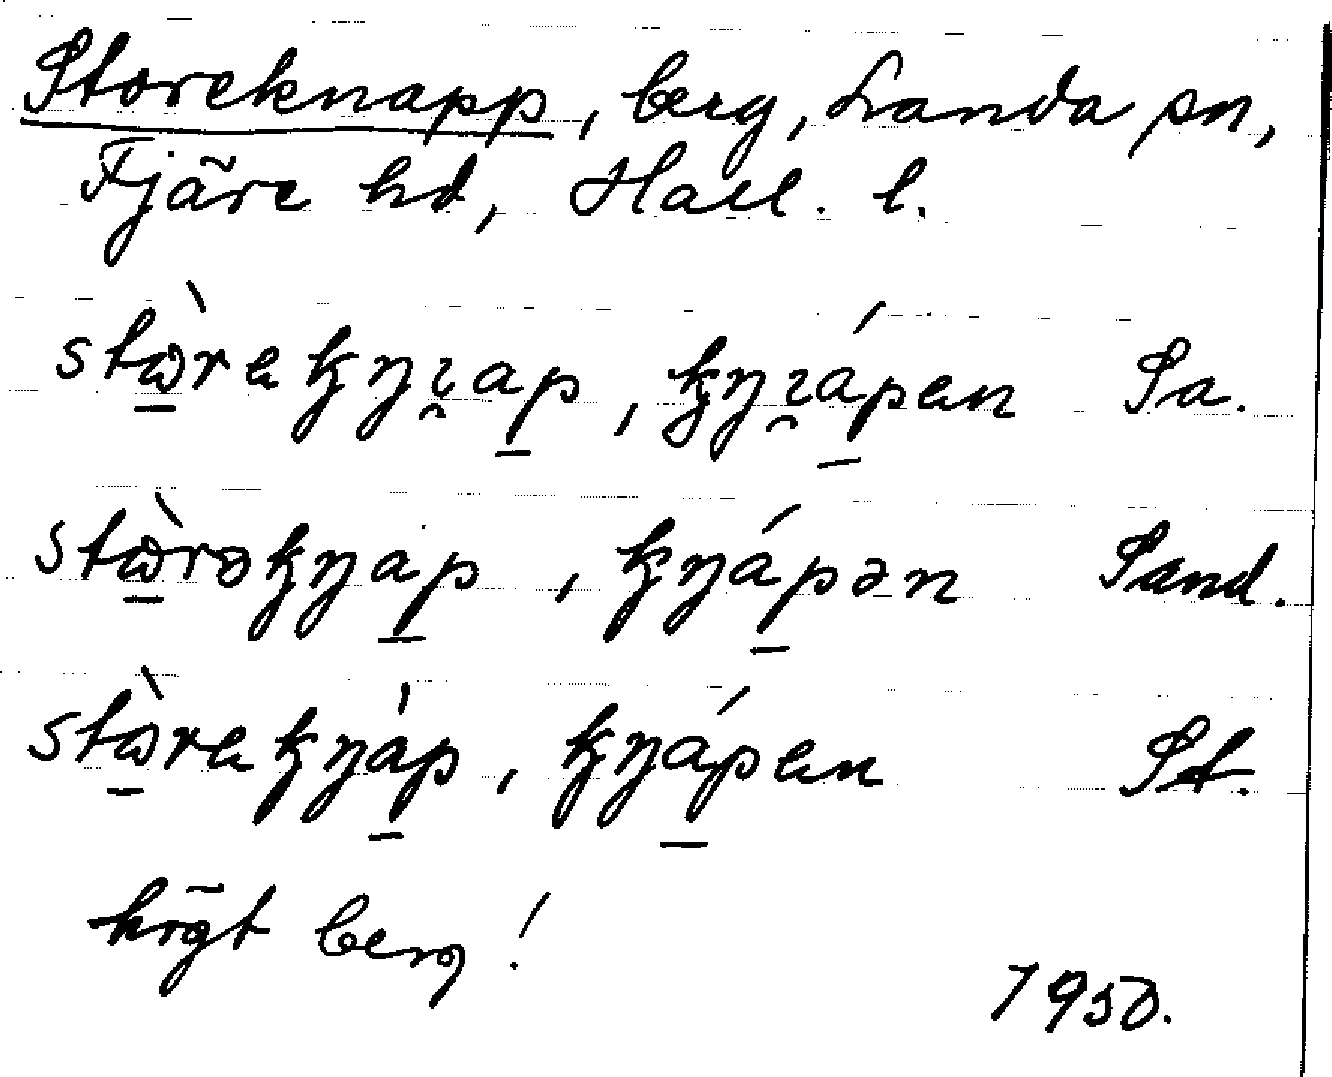 Storeknapp, berg, Landa sn,
Fjäre hd, Hall. l.
stɷ̀rekŋɿap, kŋɿápen Sa.
stɷ̀rəkŋap, kŋápən Sand.
stɷ̀rekŋàp, kŋápen St.
högt berg!
1950.